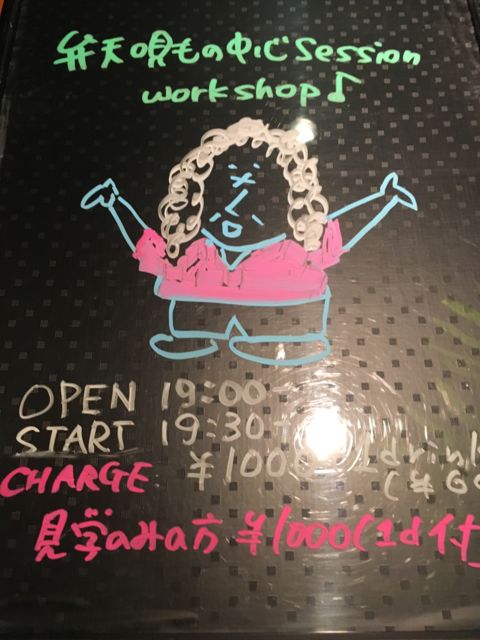 弁天唄もの中心Session
workshop♪
OPEN 19:00
START 19:30
CHARGE ¥100 1drink
(¥60
見学のみの方 ¥1000(1d付